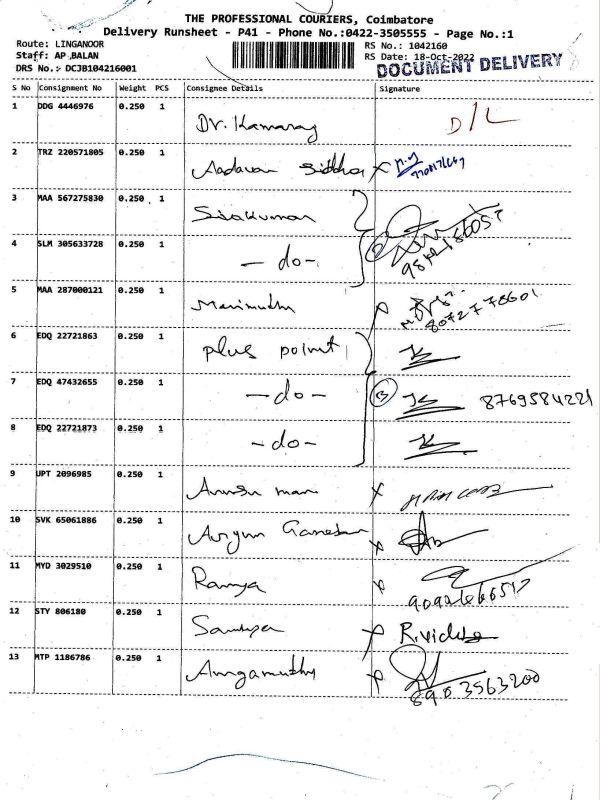 THE PROFESSIONAL COURIERS, Coimbatore
Delivery Runsheet - P41 - Phone No.:0422-3505555 - Page No.:1
Route: LINGANOOR
Staff: AP,BALAN
DRS No.: DCJB104216001
RS No.: 1042160
RS Date: 18-Oct-2022
DOCUMENT DELIVERY
S No Consignment No Weight PCS Consignee Details Signature
1 DDG 4446976 0.250 1 Dr. Kamaraj D/L
2 TRZ 220571805 0.250 1 Aadavan Siddhar X
3 MAA 567275830 0.250 1 Sivakumar
4 SLM 305633728 0.250 1 - do - 2
5 MAA 287000121 0.250 1 Marimuthu 8072778601
6 EDQ 22721863 0.250 1 plus point
7 EDQ 47432655 0.250 1 - do - 3 8769584221
8 EDQ 22721873 0.250 1 - do -
9 UPT 2096985 0.250 1 X
10 SVK 65061886 0.250 1 Arjun Ganesan X
11 MYD 3029510 0.250 1 Ramya X
12 STY 806180 0.250 1 Sandhya X
13 MTP 1186786 0.250 1 Anngamuthu X 8903563200